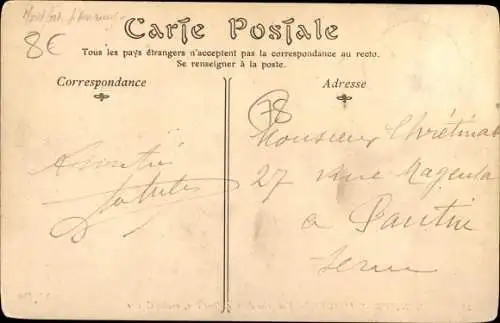 8€
Carte Postale
Tous les pays étrangers n'acceptent pas la correspondance au recto.
Se renseigner à la poste.
Correspondance
Adresse
78
Monsieur Chrétinat
27 rue Magenta
a Pantin
Seine